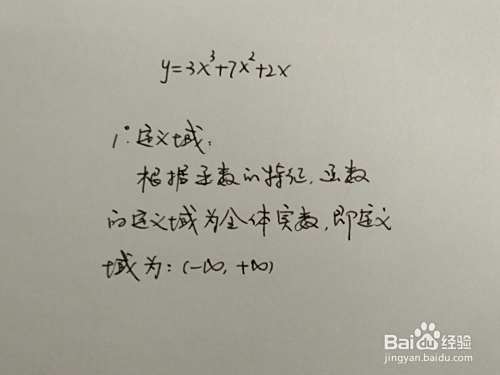 y=3x³+7x²+2x
1°.定义域:
根据函数的特征,函数
的定义域为全体实数,即定义
域为:(-∞,+∞)
Baidu经验
jingyan.baidu.com